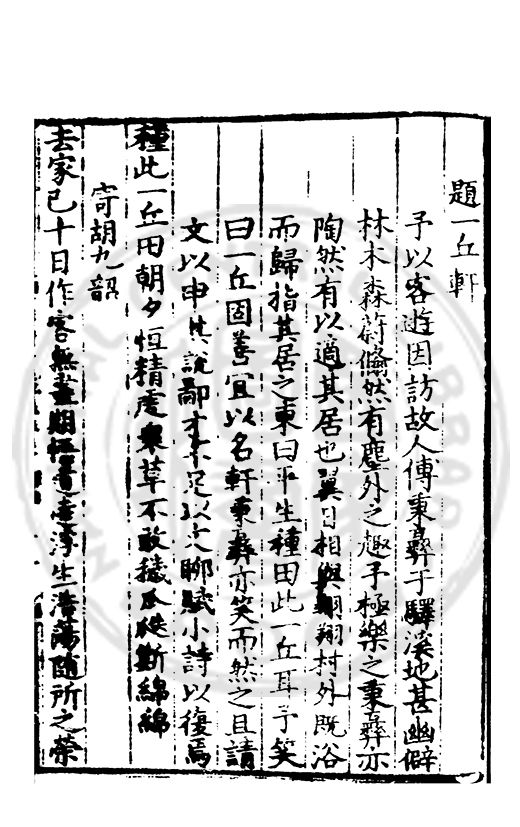 題一丘軒
予以客遊因訪故人傅秉彝于驛溪地甚幽僻
林木森蔚翛然有塵外之趣予極樂之秉彝亦
陶然有以適其居也翼日相與翱翔村外既浴
而歸指其居之東曰平生種田此一丘耳予笑
曰一丘固善宜以名軒秉彝亦笑而然之且請
文以申其說鄙才不足以文聊賦小詩以復焉
種此一丘田朝夕恒精虔眾草不敢穢瓜瓞斯綿綿
寄胡九韶
去家已十日作客無盡期恒浮生浩蕩隨所之榮